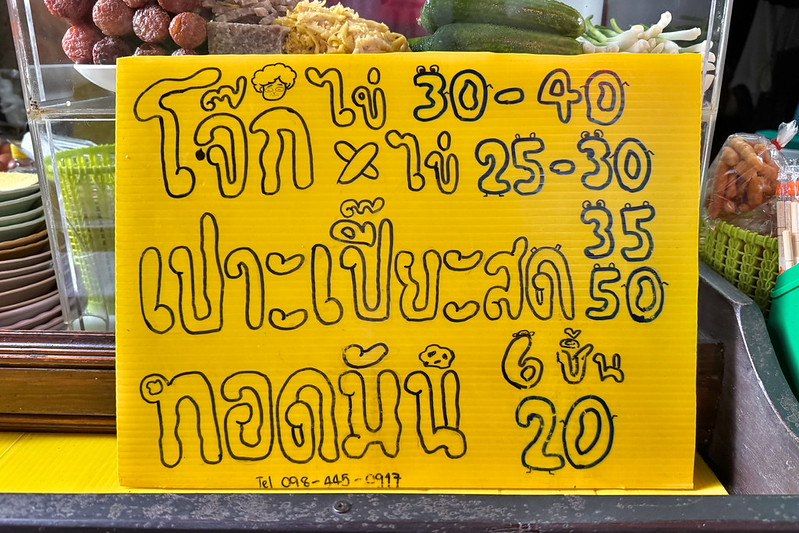 โจ๊ก ไข่ 30-40
x ไข่ 25-30
เปาะเปี๊ยะสด 35
50
ทอดมัน 6 ชิ้น
20
Tel 098-445-0917